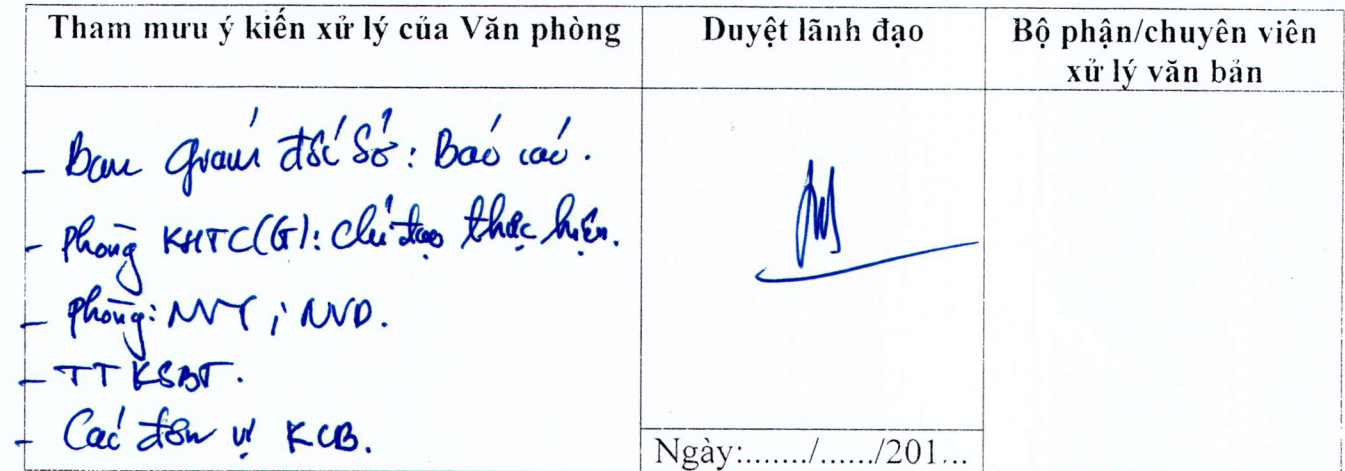 Tham mưu ý kiến xử lý của Văn phòng
Duyệt lãnh đạo
Bộ phận/chuyên viên
xử lý văn bản
- Ban Giám đốc Sở: Báo cáo.
- Phòng KHTC(G): chỉ đạo thực hiện.
- Phòng: NVY; NVD.
- TT KSBT.
- Các đơn vị KCB.
Ngày:......./....../201...